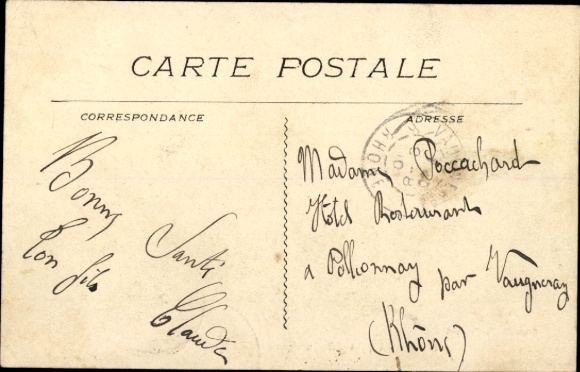 CARTE POSTALE
CORRESPONDANCE
ADRESSE
Bonne Santé
ton fils Claude
Madame Poccachard
Hôtel Restaurant
a Pollionnay par Vaugneray
(Rhône)
RHONE